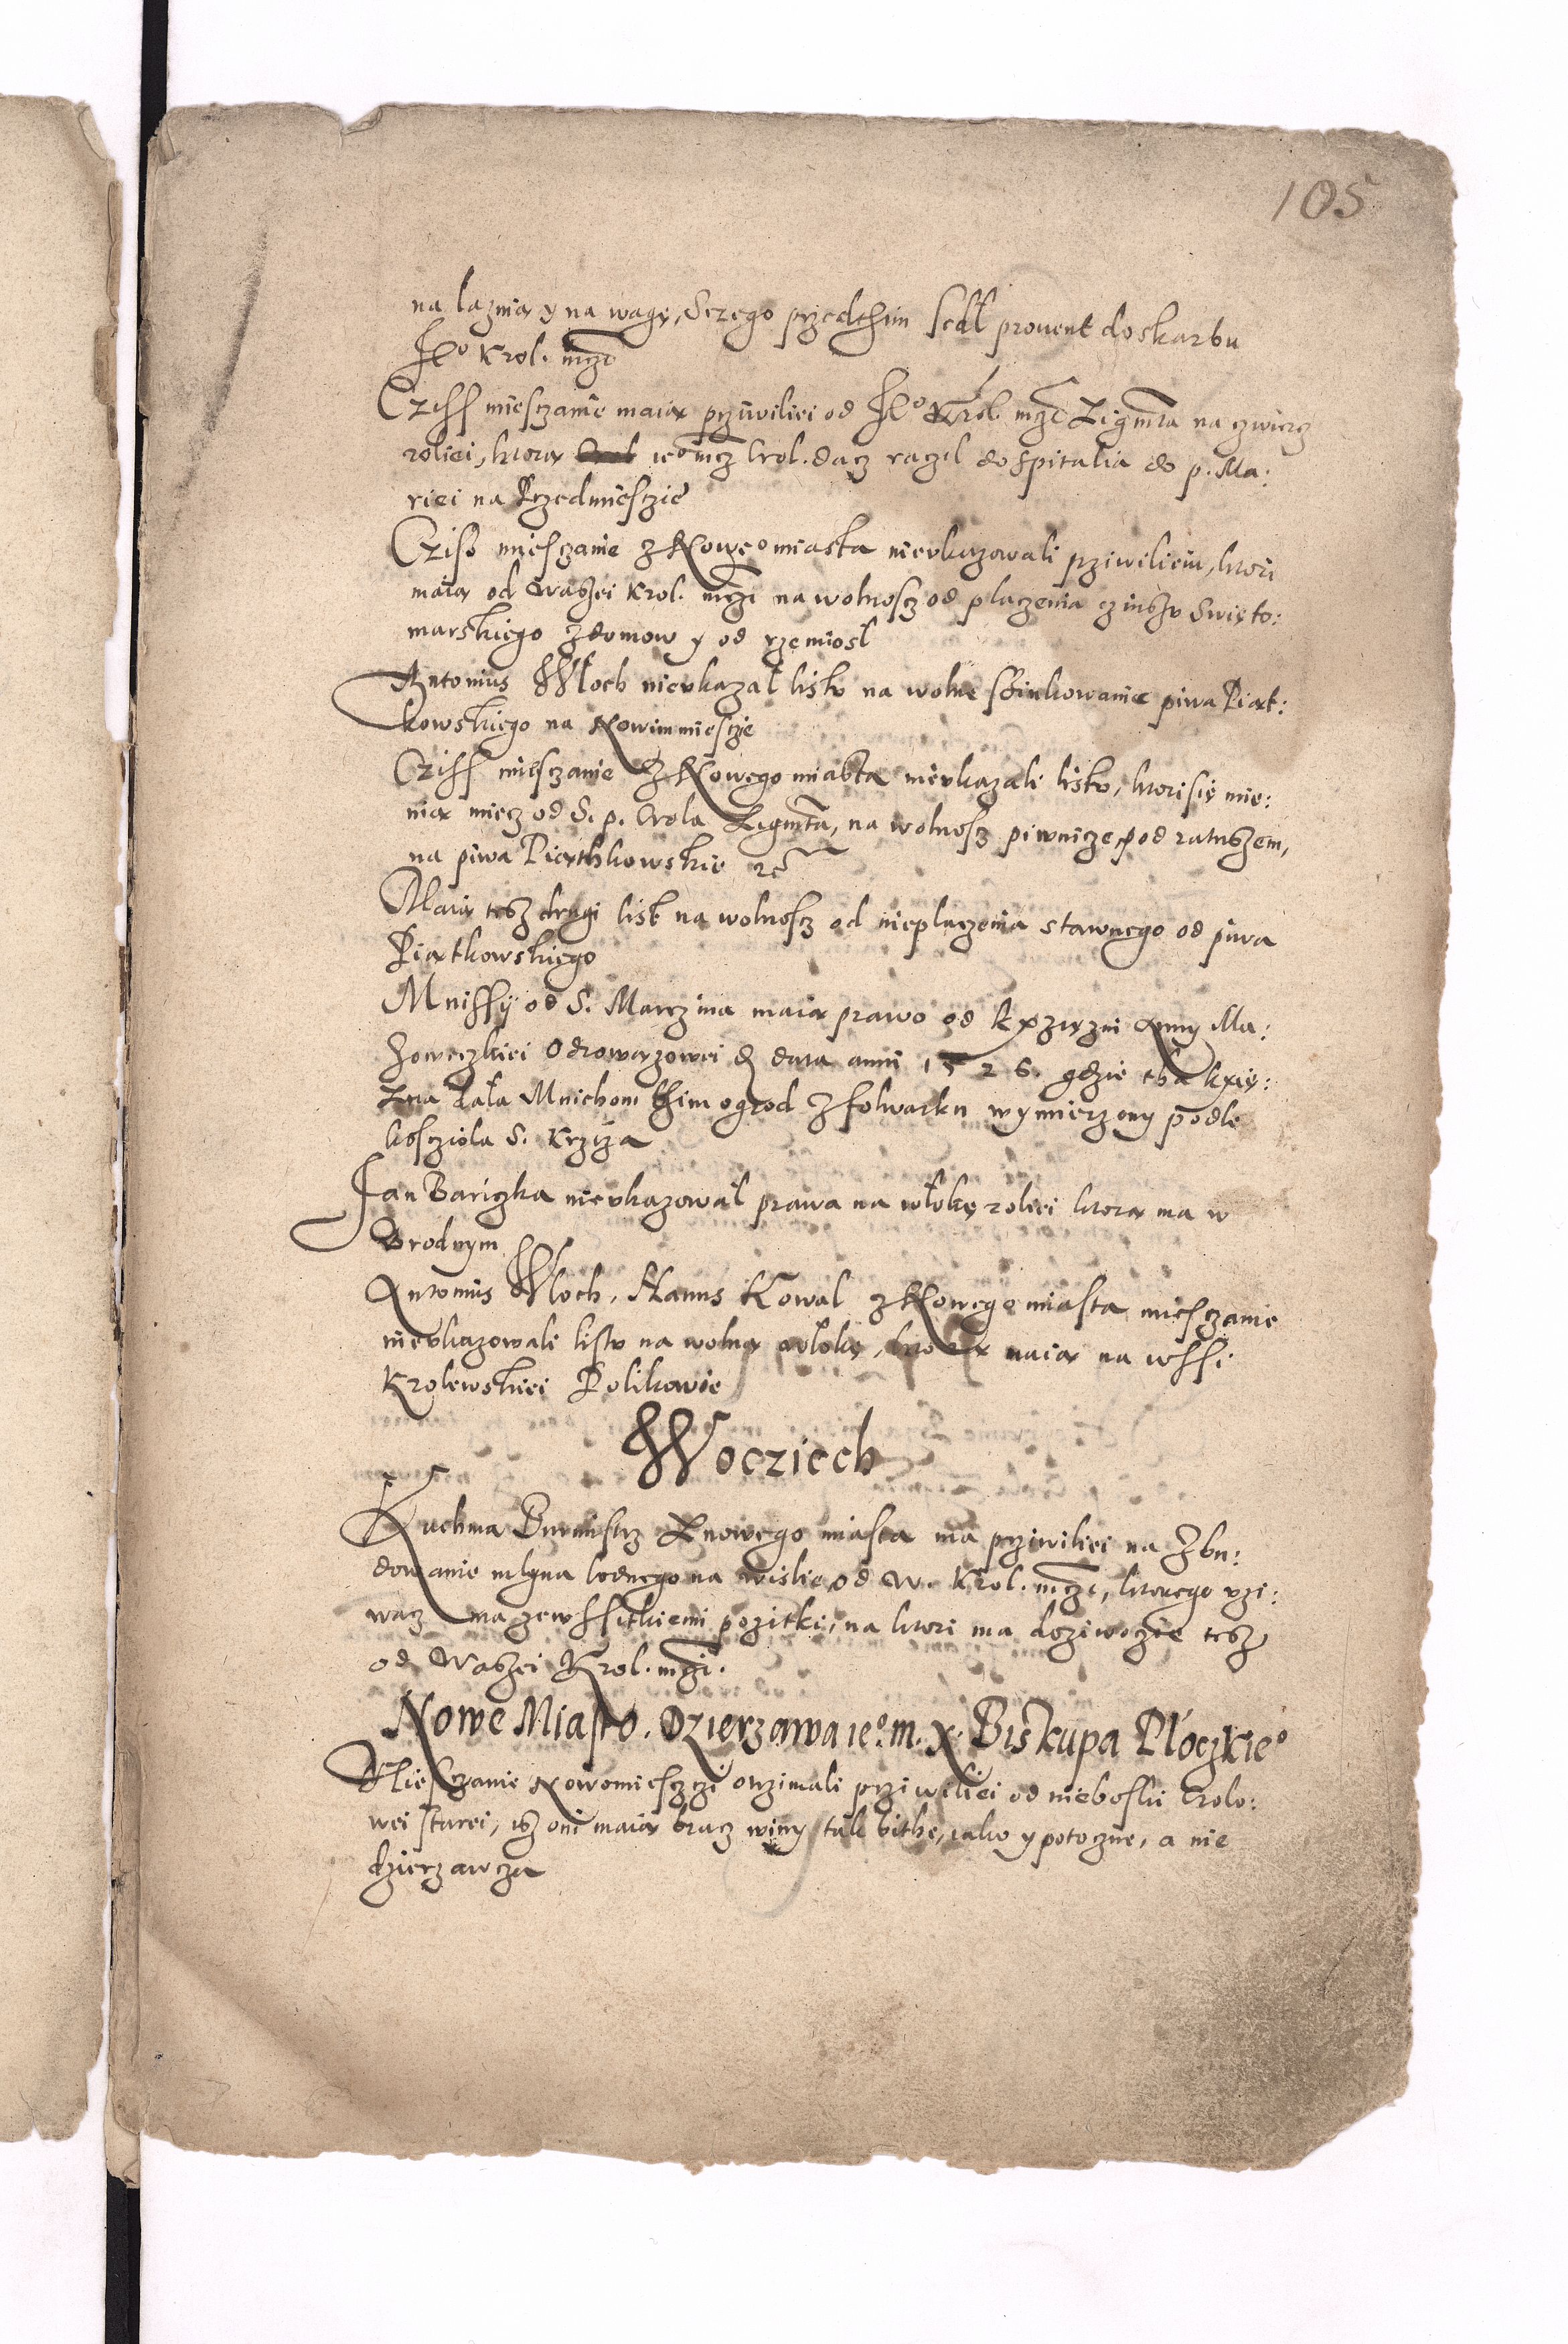 105
na laznią y na wagę, s czego przedthim sedl prouent do skarbu
Je° Krol. mczi
Cziss miesczanie maią prziwiliei od Je° Krol. mczi Zigmta na czwiercz
roliei, ktorą ie° mcz Krol. dacz raczil do spitalia do p. Ma:
riei na Przedmiesczie
Czisz miesczanie z Nowe° miasta nievkazowali prziwilieiu, ktori
maią od Waszei Krol. mczi na wolnoscz od placzenia czinszu Swięto:
marskiego z domow y od rzemiosl
Antonius Wloch nievkazal listu na wolne szinkowanie piwa Piąt:
kowskiego na Nowim miescze
Cziss miesczanie z Nowego miasta nievkazali listu, ktori się mie:
nią miecz od S. p. Crola Zigmta, na wolnoscz piwnicze pod ratuszem,
na piwa Piąthkowskie etc
Maią tesz drugi list na wolnoscz od nieplaczenia stawnego od piwa
Piątkowskiego
Mnissy od S. Marczina maią prawo od Kxzięzni Anny Ma:
zowieczkiei Odrowązowei de data anni 1526. gdzie tha kxię:
zna dala Mnichom thim ogrod z folwarku wymierzony podle
kosciola S. Krziza
Jan Bariczka nievkazowal prawa na wlokę roliei ktorą ma w
Brodnym
Antonius Wloch, Hanus Kowal z Nowego miasta miesczanie
nievkazowali listu na wolną wlokę, ktorą maią na wssi
Krolewskiei Polikowie
Woeziech
Kuchma Burmistrz z nowego miasta ma prziwiliei na zbu:
dowanie mlyna lodnego na wislie od W. Krol. mczi, ktorego vzi:
wacz ma ze wssitkiemi pozitki, na ktori ma doziwoczie tesz
od Waszei Krol. mczi.
Nowe Miasto. Dzierzawa ie°. m. X. Biskupa Ploczkie°
Miesczanie Nowomiesczczi otrzimali prziwiliei od nieboski Crolo:
wei starei, isz oni maią bracz winy tak bithe, iako y potoczne, a nie
dzierzawcza